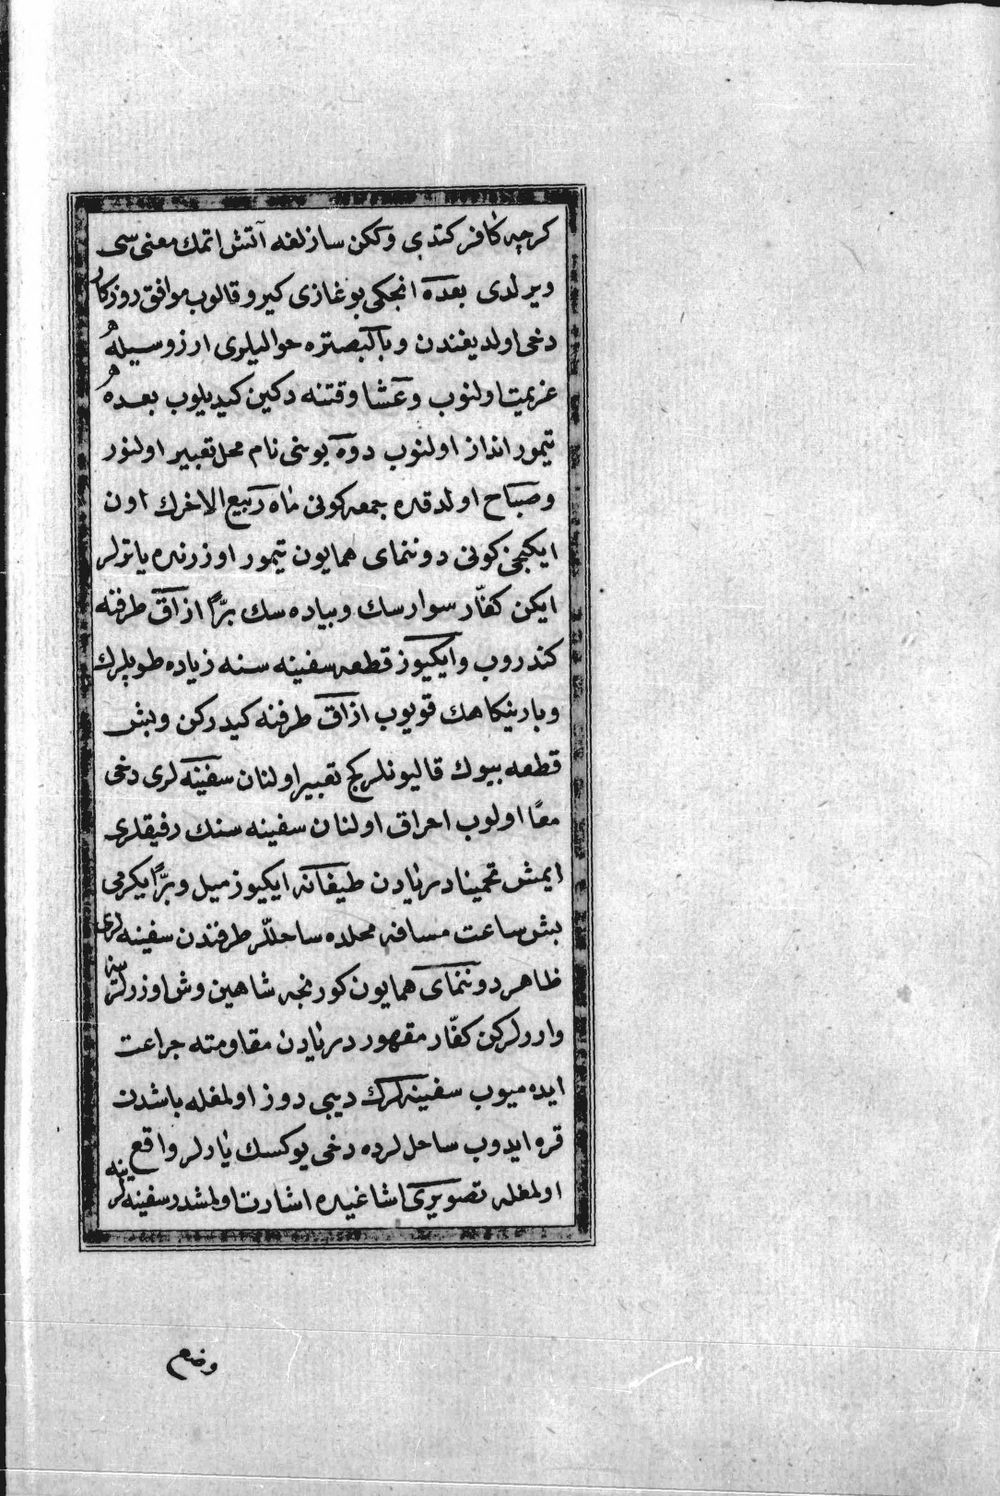 كرچه كافر كتدى وككن سازلغه آتش اتمك معنى سى
ويرلدى بعده انجكى بوغازى كيرو قالوب موافق روزكار
دخى اولديغندن وبالبصتره حواليلرى ارزوسيله
عزيمت اولنوب وعشا وقتنه دكين كيديلوب بعده
تيمور انداز اولنوب دوه بوينى نام محل تعبير اولنور
وصباح اولدقده جمعه كونى ماه ربيع الاخرك اون
ايكيجى كونى دوننماى همايون تيمور اوزرنده ياترلر
ايكن كفّار سوارسك وپياده سك برّاً ازاق طرفنه
كندروب وايكيوز قطعه سفينه سنه زياده طوپلرك
وبارينكاهك قويوب ازاق طرفنه كيدركن وبش
قطعه بيوك قاليونلر كج تعبير اولنان سفينه لرى دخى
معًا اولوب احراق اولنان سفينه سنك رفيقلرى
ايمش تخمينا دريادن طيغانه ايكيوز ميل وبرّاً يكرمى
بش ساعت مسافه محلده ساحللر طرفندن سفينه لرى
ظاهر دوننماى همايون كورنجه شاهين وش اوزرلرينه
واررلركن كفّار مقهور دريادن مقاومته جراعت
ايده ميوب سفينه لرك ديبى دوز اولمغله باشدن
قره ايدوب ساحللرده دخى يوكسك يارلر واقع
اولمغله تصويرى اشاغيده اشارت اولمشدر سفينه لرينه
وضع